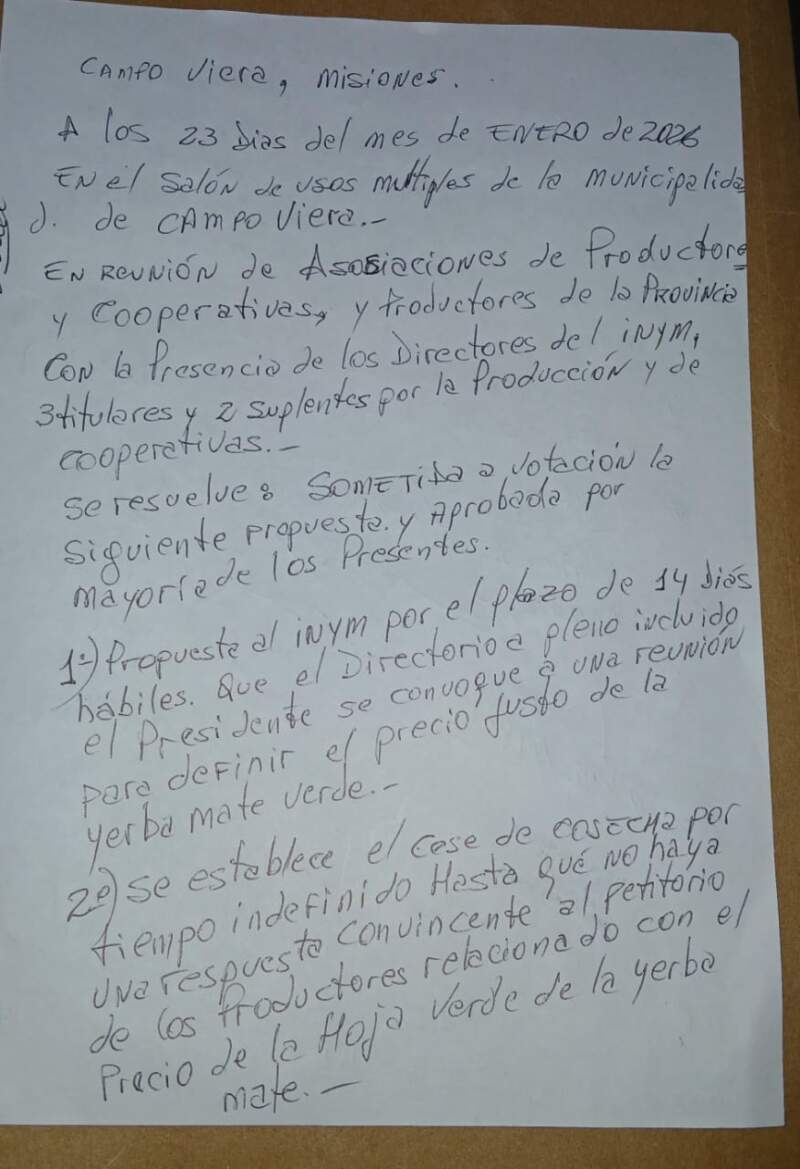 CAMPO Viera, MISIONES.
A los 23 Dias del mes de ENERO de 2026
EN el Salón de usos multiples de la MUNICIPALIDA
d. de CAMPO Viera.-
EN REUNIÓN de Asosiaciones de Productore
y Cooperativas, y Productores de la PROVINCIA
CON la Presencia de los Directores del iNYM,
3 titulares y 2 suplentes por la Producción y de
cooperativas.-
se resuelve: SOMETIDA a votación la
siguiente propuesta. y Aprobada por
mayoría de los Presentes.
1º) Propuesta al iNYM por el plazo de 14 Diás
hábiles. Que el Directorio a pleno incluido
el Presidente se convoque a una reunión
para definir el precio justo de la
yerba mate verde.-
2º) se establece el cese de COSECHA por
tiempo indefinido Hasta qué No haya
una respuesta convincente al petitorio
de los Productores relacionado con el
Precio de la Hoja Verde de la yerba
mate.-